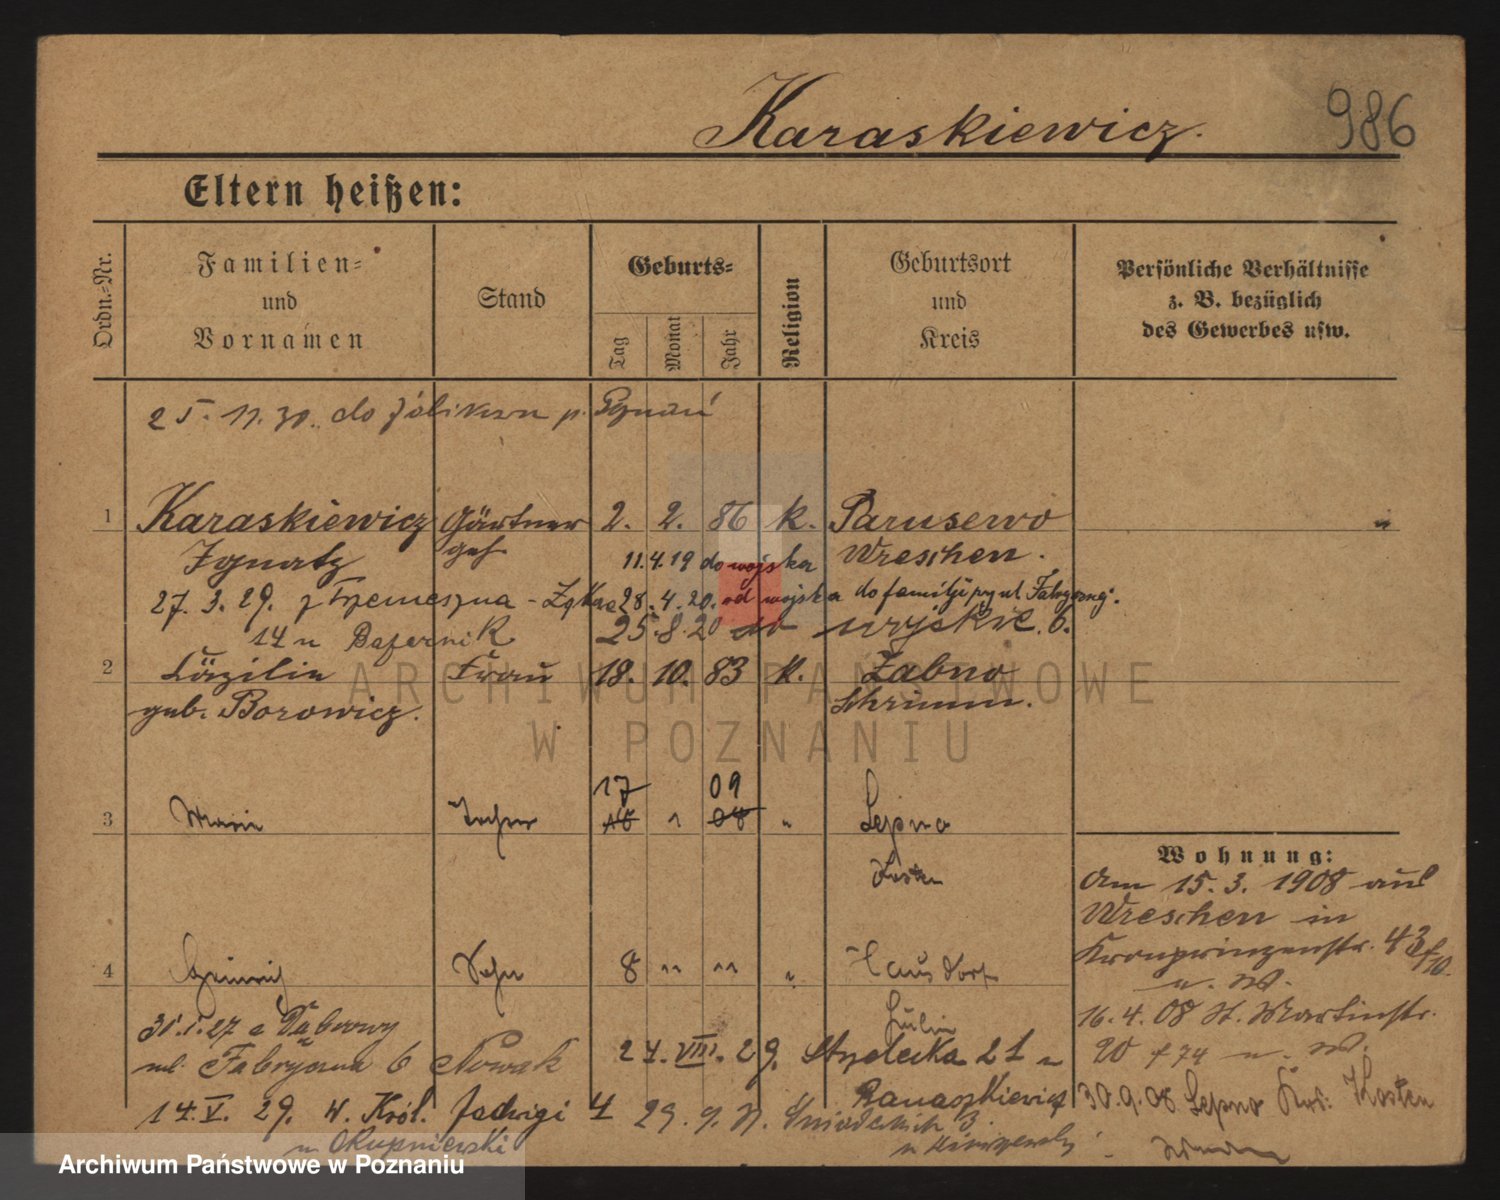 Karaskiewicz.
986
Eltern heißen:
Ordn.-Nr.
Familien-
und
Vornamen
Stand
Geburts-
Tag
Monat
Jahr
Religion
Geburtsort
und
Kreis
Persönliche Verhältnisse
z. B. bezüglich
des Gewerbes usw.
25. 11. 30. do Żabikowa p. Poznań
1 Karaskiewicz Gärtner 2. 2. 86 k. Parusewo
Ignatz geh. 11.4.19 do wojska Wreschen.
27. 3. 29. z Trzemeszna - 28. 4. 20. od wojska do familji przy ul. Fabrycznej.
14 u 25. 8. 20 do wojska
2 Cäzilia Frau 18. 10. 83 k. Zabno
geb. Borowicz. Schrimm.
17 09
3 Marie Tochter 16 1 08 " Sepno
Kosten
Wohnung:
Am 15. 3. 1908 aus
Wreschen in
Kronprinzenstr. 43
4 Heinrich Sohn 8 " " " "
u. W.
31.1.27 z Dąbrowy 16. 4. 08 St. Martinstr.
ul. Fabryczna 6 Nowak 24. VIII. 29. Strzelecka 21 u 20 f 74 u. W.
Ranaszkiewicz 30.9.08 Sepno Krs. Kosten
14. V. 29. W. Król. Jadwigi 4 29. 9. Śniadeckich 3
u Okupniewski u
ARCHIWUM PAŃSTWOWE
W POZNANIU
Archiwum Państwowe w Poznaniu